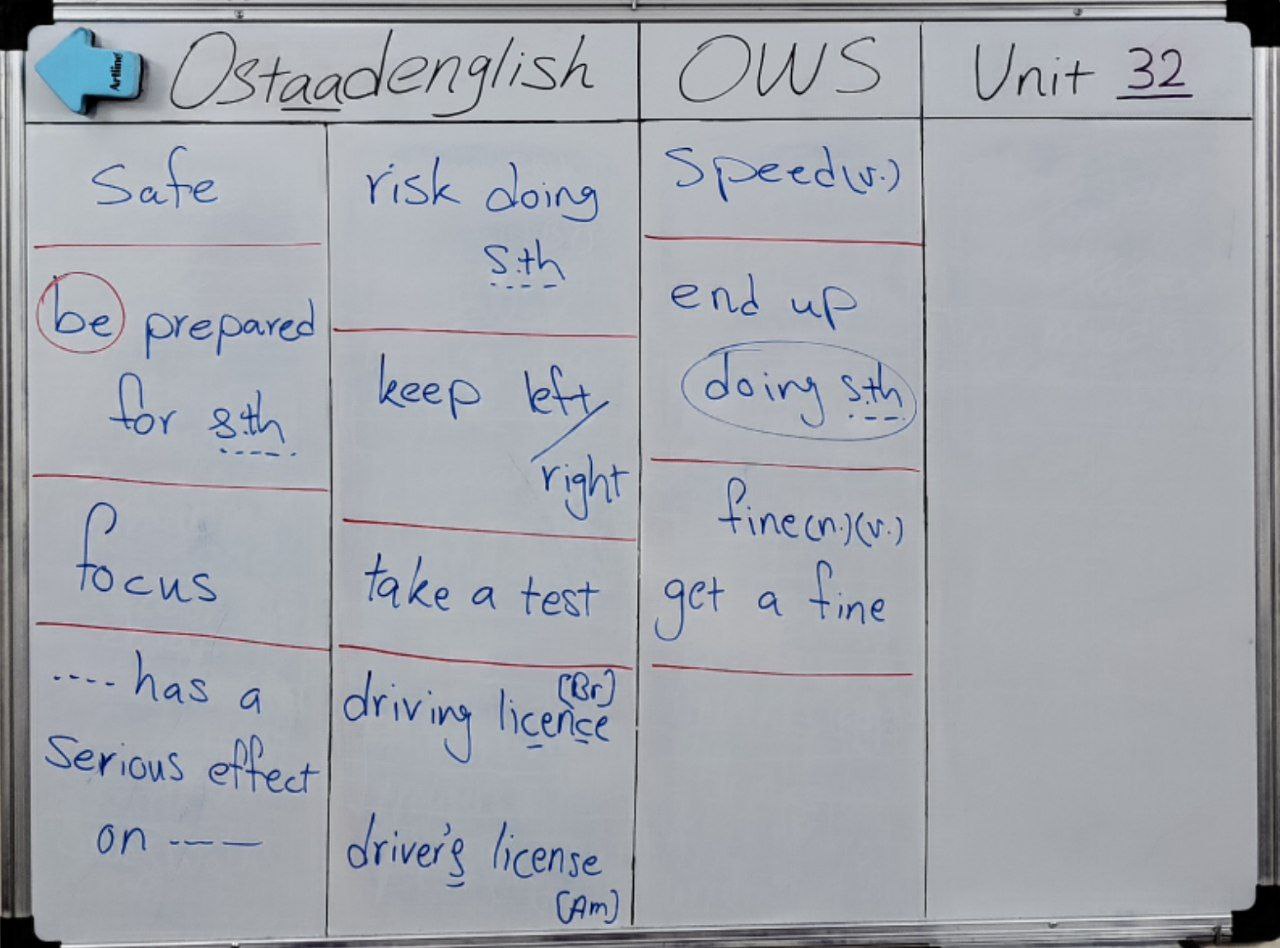 Artline
Ostaadenglish
OWS
Unit 32
Safe
be prepared
for s.th
focus
.... has a
serious effect
on ----
risk doing
s.th
keep left/
right
take a test
driving licence
(Br)
driver's license
(Am)
Speed (v.)
end up
doing s.th
fine (n.) (v.)
get a fine